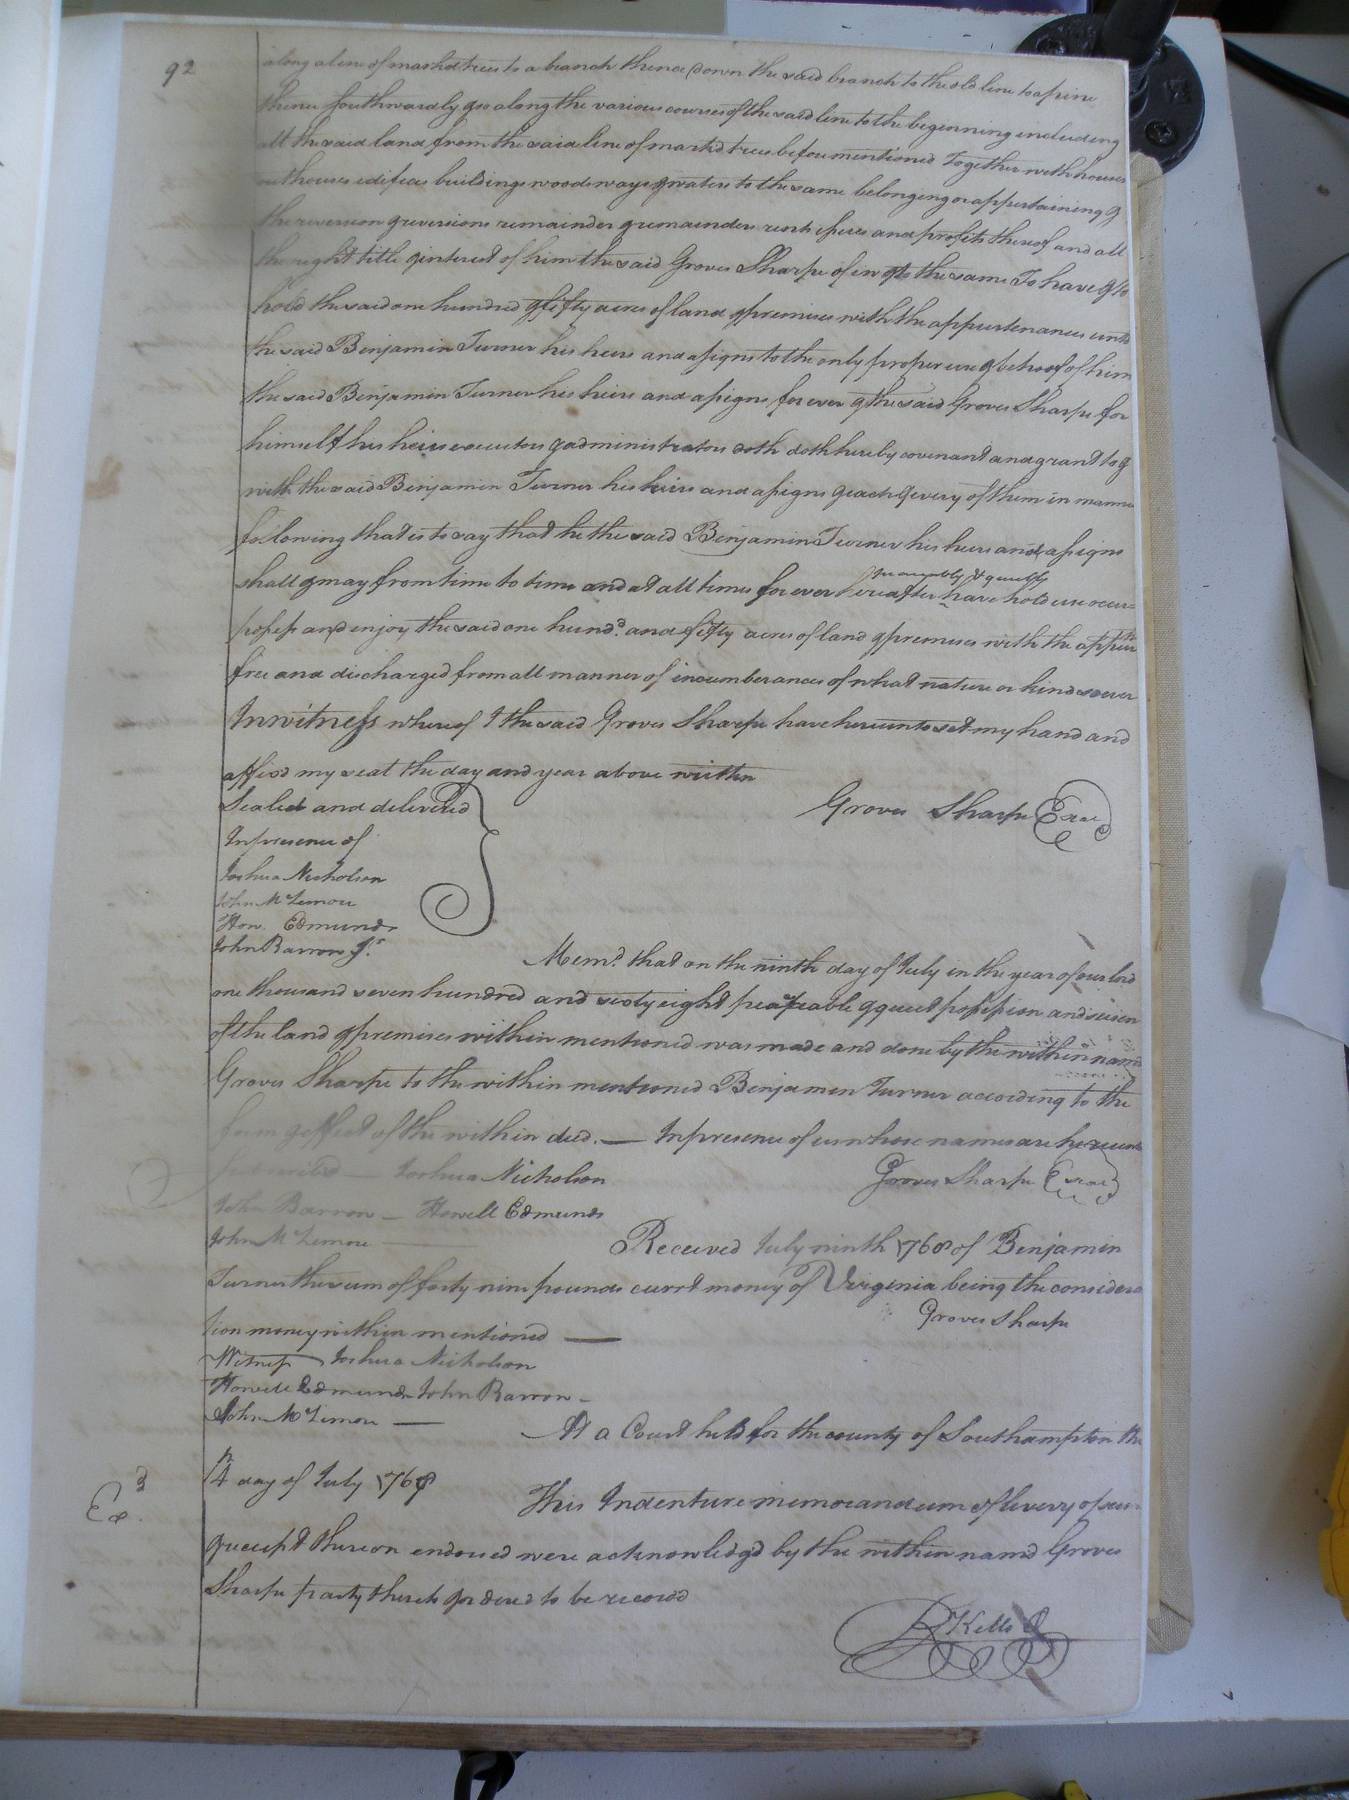 92
along a line of markd trees to a branch thence down the said branch to the old line to a pine
thence Southwardly & along the various courses of the said line to the beginning including
all the said land from the said line of markd trees before mentioned Together with houses
outhouses edifices buildings woods ways & waters to the same belonging or appertaining &
the reversion & reversions remainder & remainders rents issues and profits thereof and all
the right title & interest of him the said Groves Sharpe of in & to the same To have & to
hold the said one hundred & fifty acres of land & premises with the appurtenances unto
the said Benjamin Turner his heirs and assigns to the only proper use & behoof of him
the said Benjamin Turner his heirs and assigns for ever & the said Groves Sharpe for
himself his heirs executors & administrators doth doth hereby covenant and grant to &
with the said Benjamin Turner his heirs and assigns & each & every of them in manner
following that is to say that he the said Benjamin Turner his heirs and assigns
peaceably & quietly
shall & may from time to time and at all times for ever hereafter have hold use occu=
possess and enjoy the said one hundd. and fifty acres of land & premises with the appurts
free and discharged from all manner of incumberances of what nature or kind soever
In witness whereof I the said Groves Sharpe have hereunto set my hand and
affixd my seal the day and year above written
Sealed and delivered
Groves Sharpe Seal
In presence of
Joshua Nicholson
John McLemore
How. Edmunds
John Barrow Jr.
Memd. that on the ninth day of July in the year of our lord
one thousand seven hundred and sixty eight peaceable & quiet possession and seisen
of the land & premises within mentioned was made and done by the within namd
Groves Sharpe to the within mentioned Benjamen Turner according to the
form & effect of the within deed. — In presence of us whose names are hereunto
subscribed — Joshua Nicholson
Groves Sharpe Seal
John Barrow — Howell Edmunds
John McLemore —
Received July ninth 1768 of Benjamin
Turner the sum of forty nine pounds currt money of Virginia being the considera
tion money within mentioned —
Groves Sharpe
Witness Joshua Nicholson
Howell Edmunds John Barrow -
John McLemore —
At a Court held for the county of Southampton the
14th day of July 1768
This Indenture memorandum of livery of seisin
Exd.
& receipt thereon endorsed were acknowledgd by the within namd Groves
Sharpe party thereto & orderd to be record
R Kello